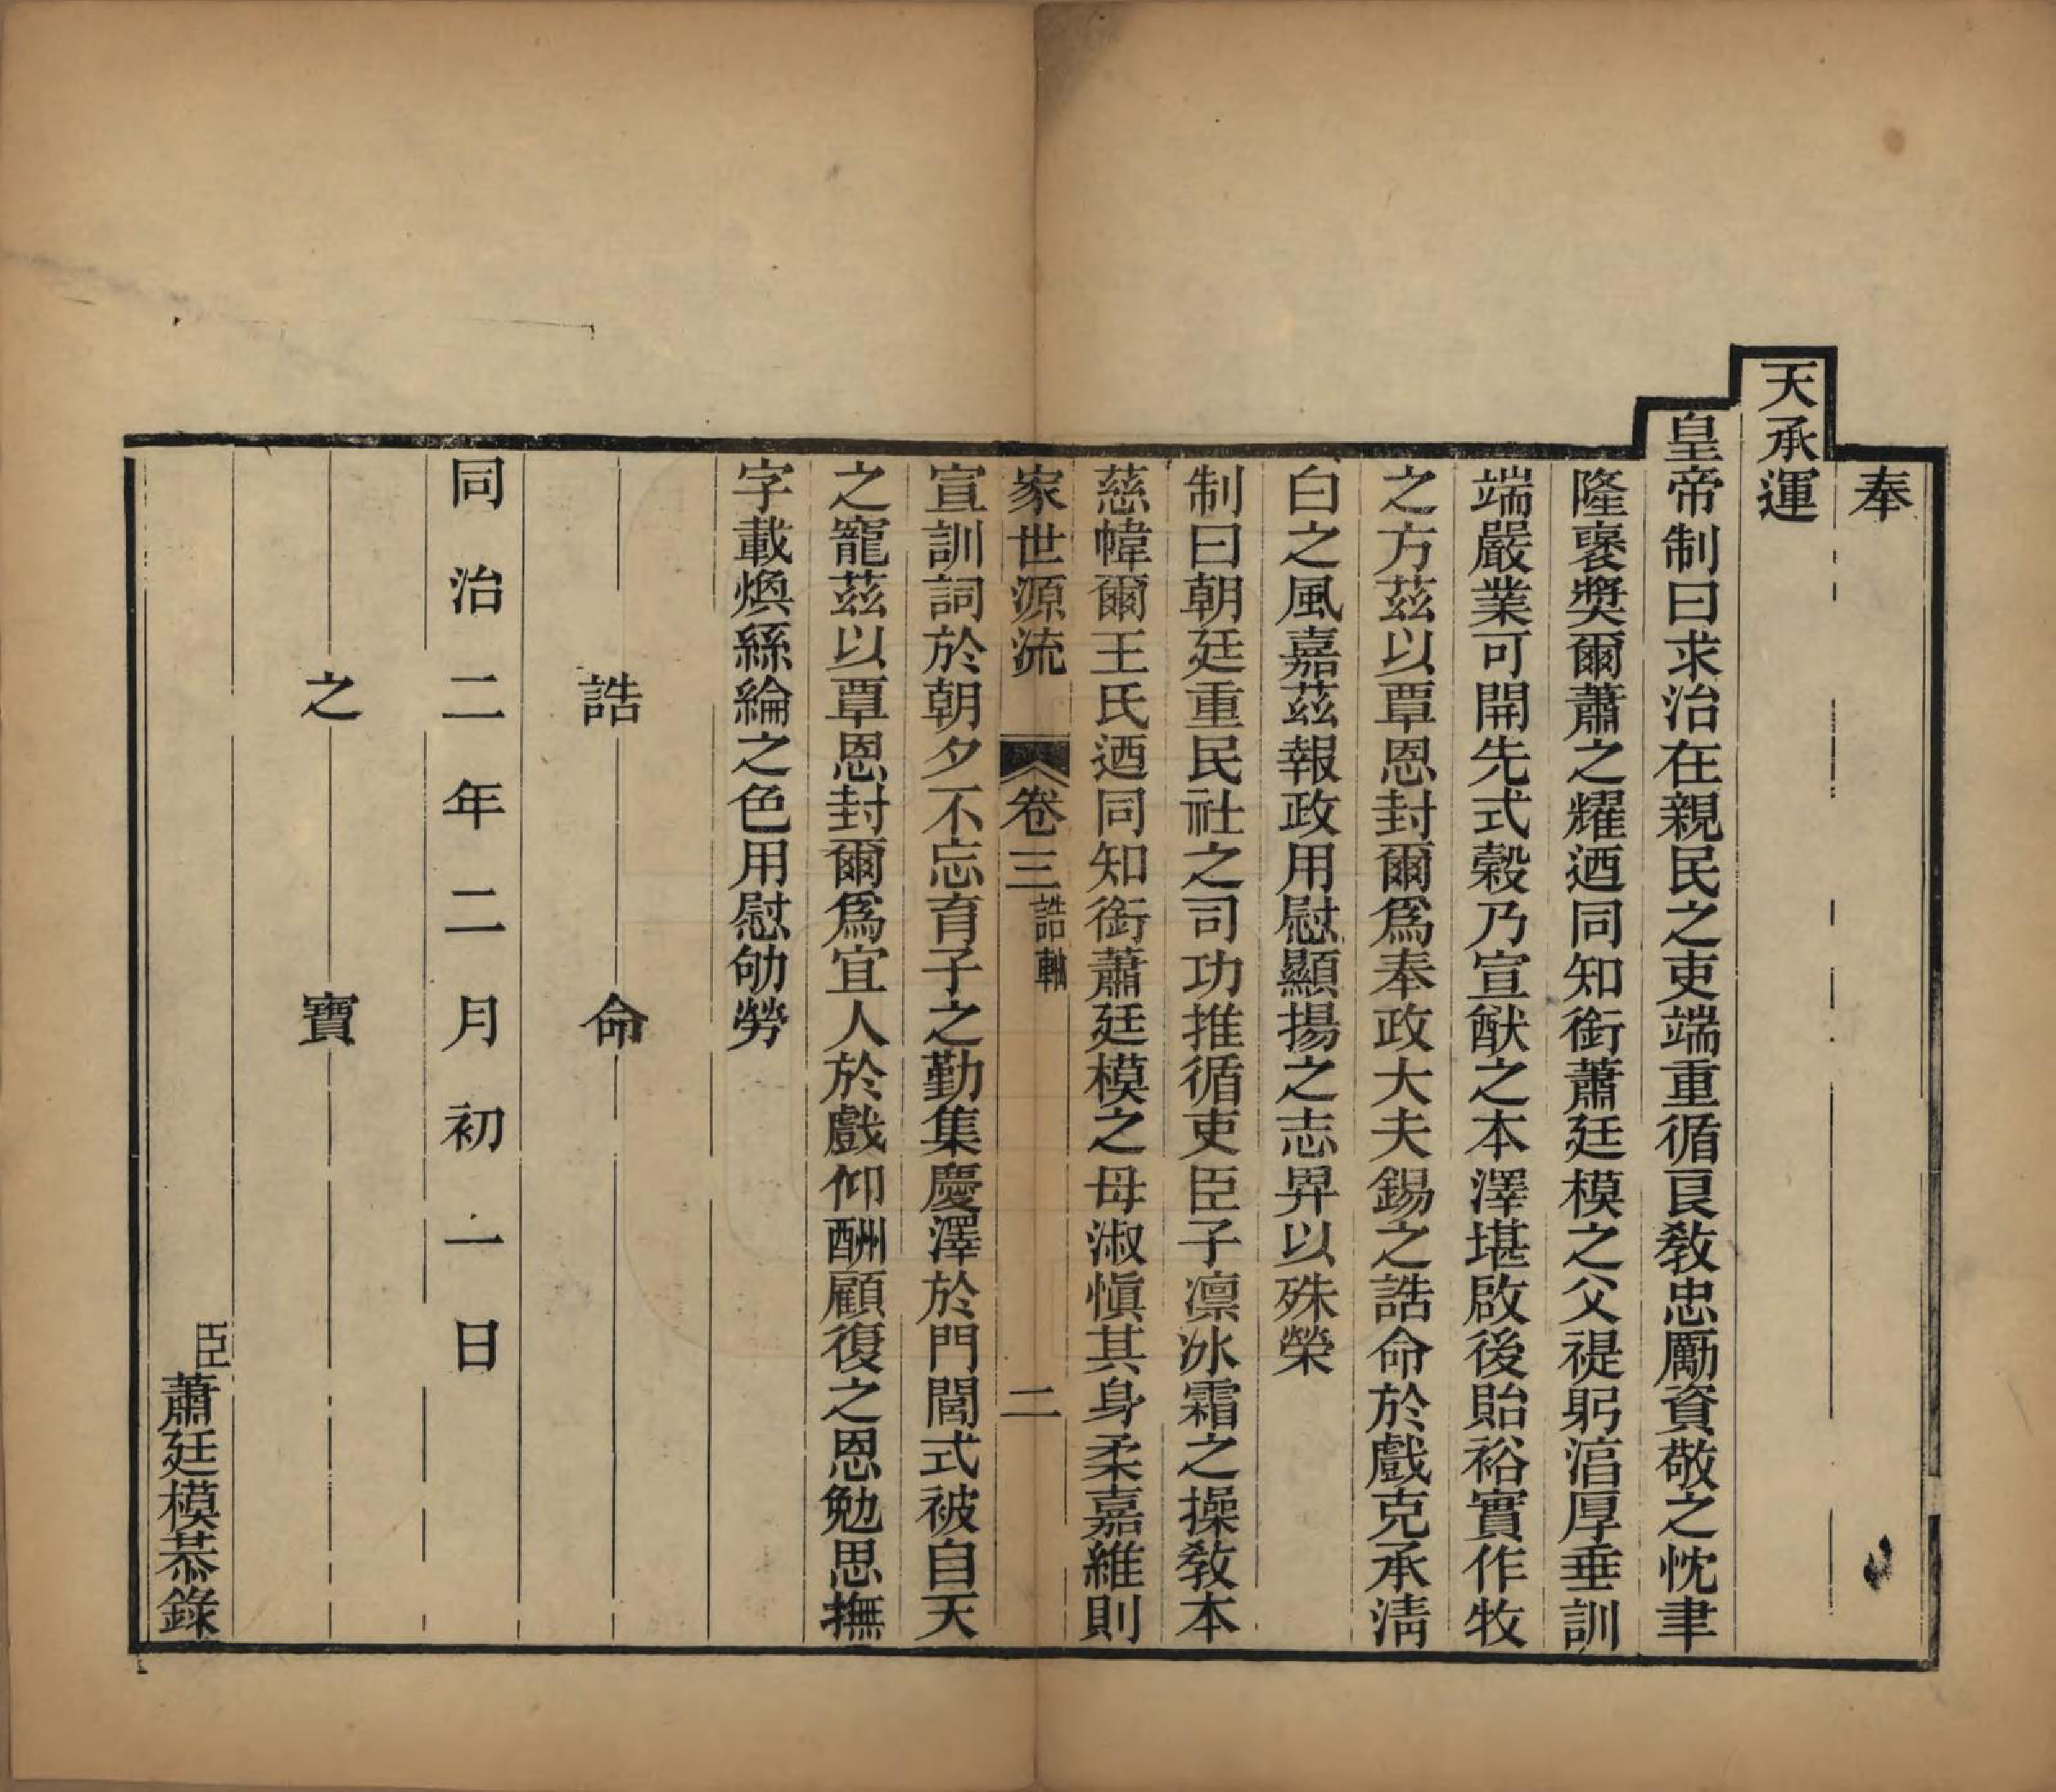 奉
天承運
皇帝制曰求治在親民之吏端重循良敎忠勵資敬之忱聿
隆褒獎爾蕭之耀迺同知銜蕭廷模之父禔躬湻厚垂訓
端嚴業可開先式榖乃宣猷之本澤堪啟後貽裕實作牧
之方茲以覃恩封爾爲奉政大夫錫之誥命於戲克承淸
白之風嘉茲報政用慰顯揚之志畀以殊榮
制曰朝廷重民社之司功推循吏臣子凛冰霜之操敎本
慈幃爾王氏迺同知銜蕭廷模之母淑愼其身柔嘉維則
家世源流 卷三 誥軸 二
宣訓詞於朝夕不忘育子之勤集慶澤於門閭式被自天
之寵茲以覃恩封爾爲宜人於戲仰酬顧復之恩勉思撫
字載煥絲綸之色用慰劬勞
誥命
同治二年二月初一日
之寶
臣蕭廷模恭錄